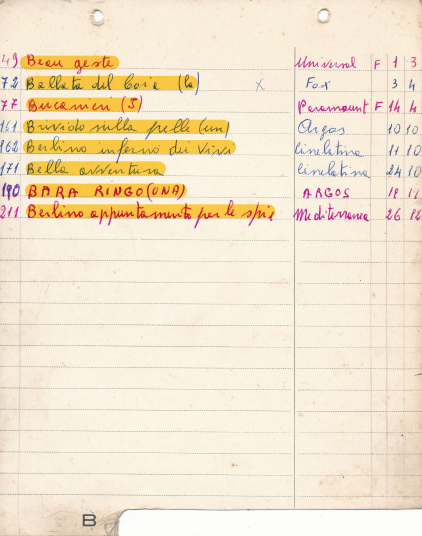 49 Beau geste Universal F 1 3
72 Ballata del boia (la) X Fox 3 4
77 Bucanieri (I) Paramount F 14 4
161 Brivido sulla pelle (un) Argos 10 10
162 Berlino inferno dei vivi Cinelatina 11 10
171 Bella avventura Cinelatina 24 10
190 BARA RINGO (UNA) ARGOS 18
211 Berlino appuntamento per le spie Mediterranea 26 12
B